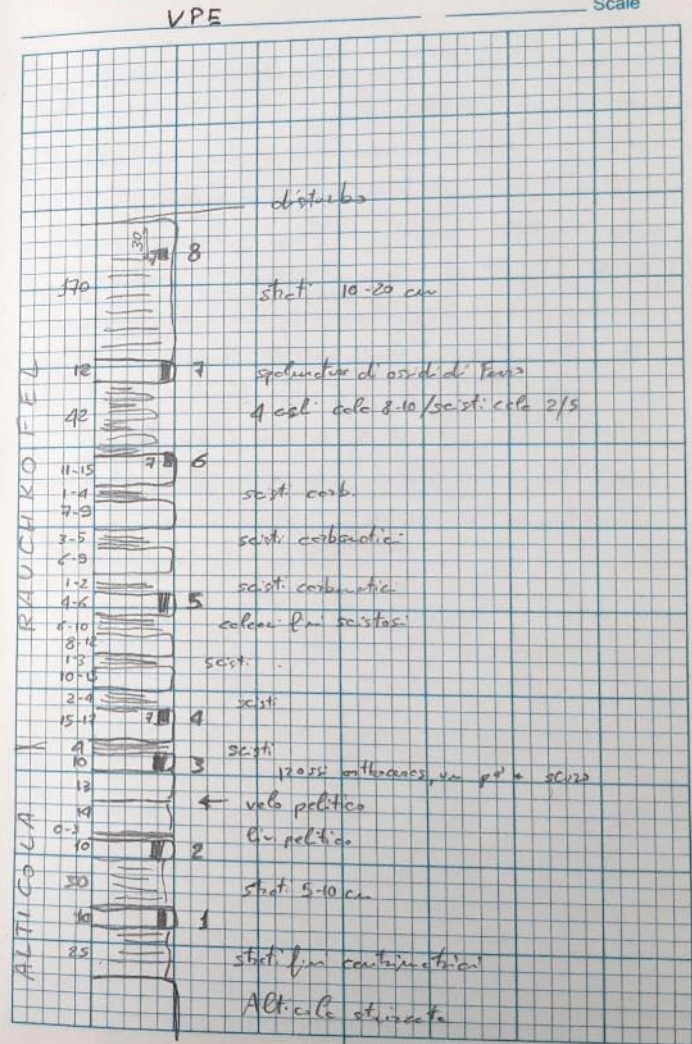 VPE
Scale
disturbo
30
8
170
strati 10-20 cm
12
7
spalmature di ossidi di Ferro
42
4 calc 8-10/scisti calc 2/5
RAUCHKOFEL
11-15
7
6
1-4
scisti carb.
7-9
3-5
scisti carbonatici
6-9
1-2
scisti carbonatici
4-6
5
6-10
calcari fini scistosi
8-12
1-3
scisti
10-15
2-4
scisti
15-17
7
4
4
scisti
10
3
grossi orthoceras, un po' + scuro
13
← velo pelitico
14
0-3
liv. pelitico
10
2
ALTICOLA
50
strati 5-10 cm
10
1
25
strati fini centimetrici
Alticola